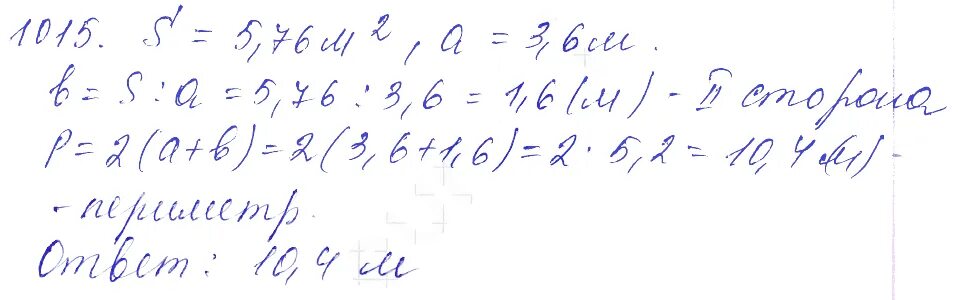 1015. S = 5,76 м², a = 3,6 м.
b = S : a = 5,76 : 3,6 = 1,6 (м) - II сторона
P = 2 (a + b) = 2 (3,6 + 1,6) = 2 · 5,2 = 10,4 (м) -
- периметр.
Ответ : 10,4 м